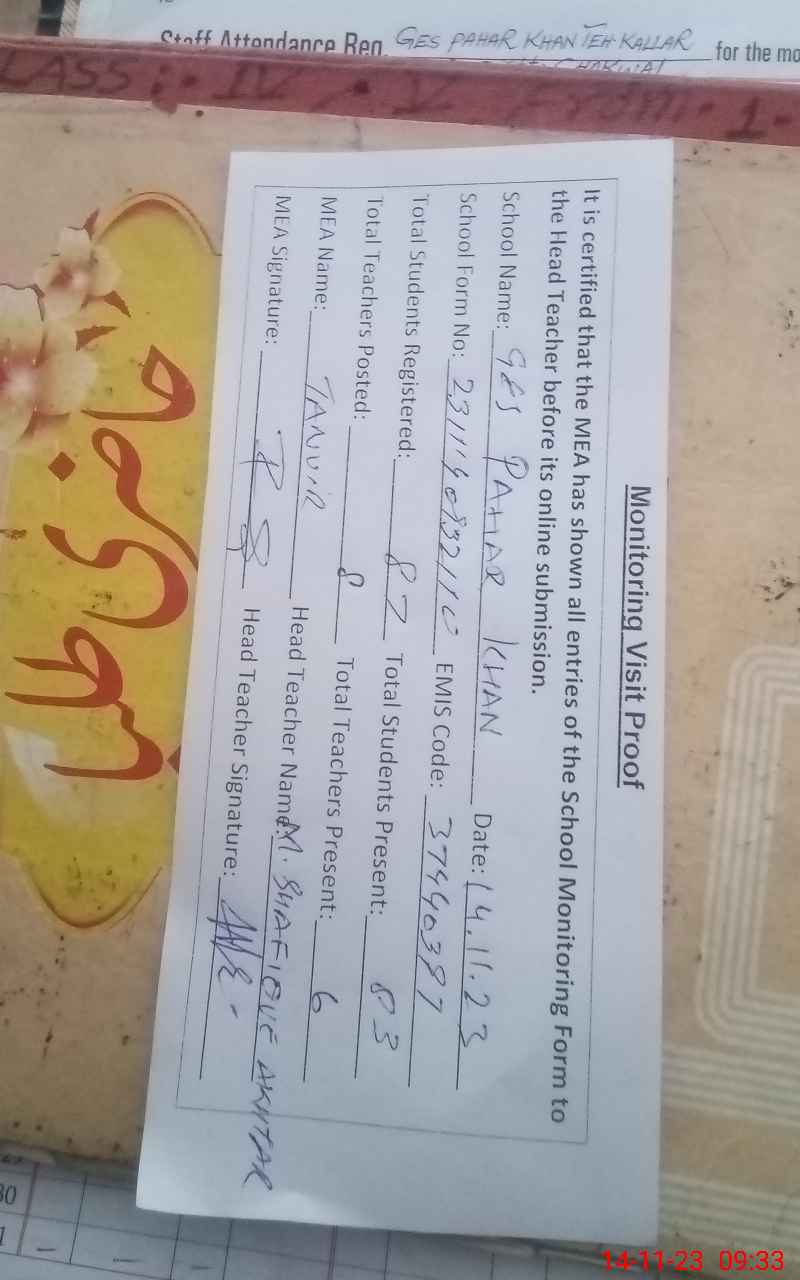 Staff Attendance Reg. GES PAHAR KHAN TEH KALLAR for the mo
CHAKWAL
CLASS:- IV . V From - 1 -
Monitoring Visit Proof
It is certified that the MEA has shown all entries of the School Monitoring Form to
the Head Teacher before its online submission.
School Name: GES PAHAR KHAN Date: 14.11.23
School Form No: EMIS Code: 37440387
Total Students Registered: 87 Total Students Present: 83
Total Teachers Posted: 8 Total Teachers Present: 6
MEA Name: TANVIR Head Teacher Name: M. SHAFIQUE AKHTAR
MEA Signature: Head Teacher Signature:
30
1
14-11-23 09:33